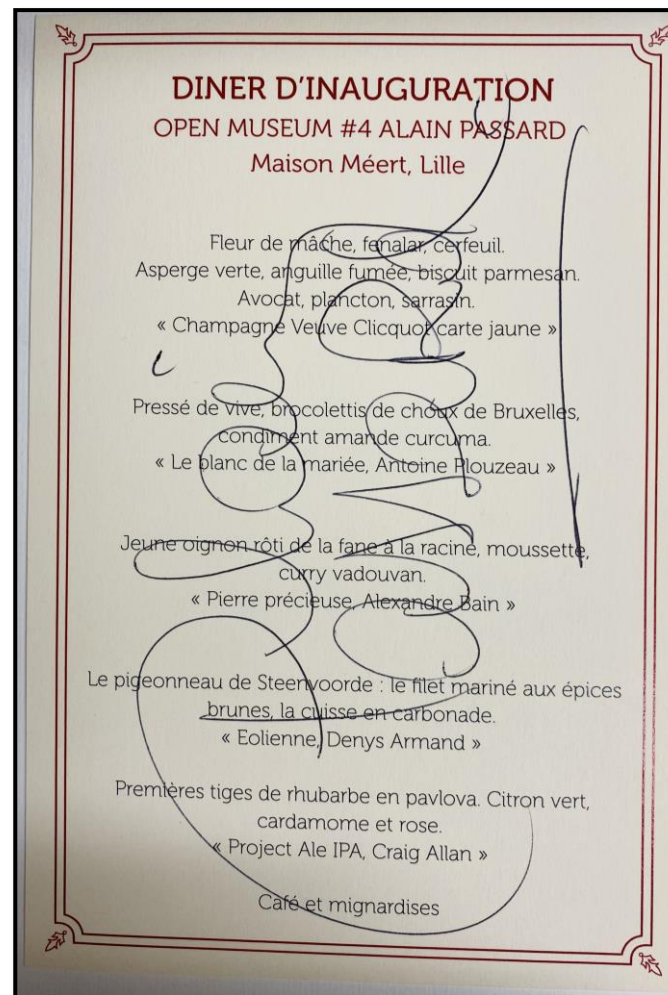 DINER D'INAUGURATION
OPEN MUSEUM #4 ALAIN PASSARD
Maison Méert, Lille
Fleur de mâche, fenalar, cerfeuil.
Asperge verte, anguille fumée, biscuit parmesan.
Avocat, plancton, sarrasin.
« Champagne Veuve Clicquot carte jaune »
Pressé de vive, brocolettis de choux de Bruxelles,
condiment amande curcuma.
« Le blanc de la mariée, Antoine Plouzeau »
Jeune oignon rôti de la fane à la racine, moussette,
curry vadouvan.
« Pierre précieuse, Alexandre Bain »
Le pigeonneau de Steenvoorde : le filet mariné aux épices
brunes, la cuisse en carbonade.
« Eolienne, Denys Armand »
Premières tiges de rhubarbe en pavlova. Citron vert,
cardamome et rose.
« Project Ale IPA, Craig Allan »
Café et mignardises